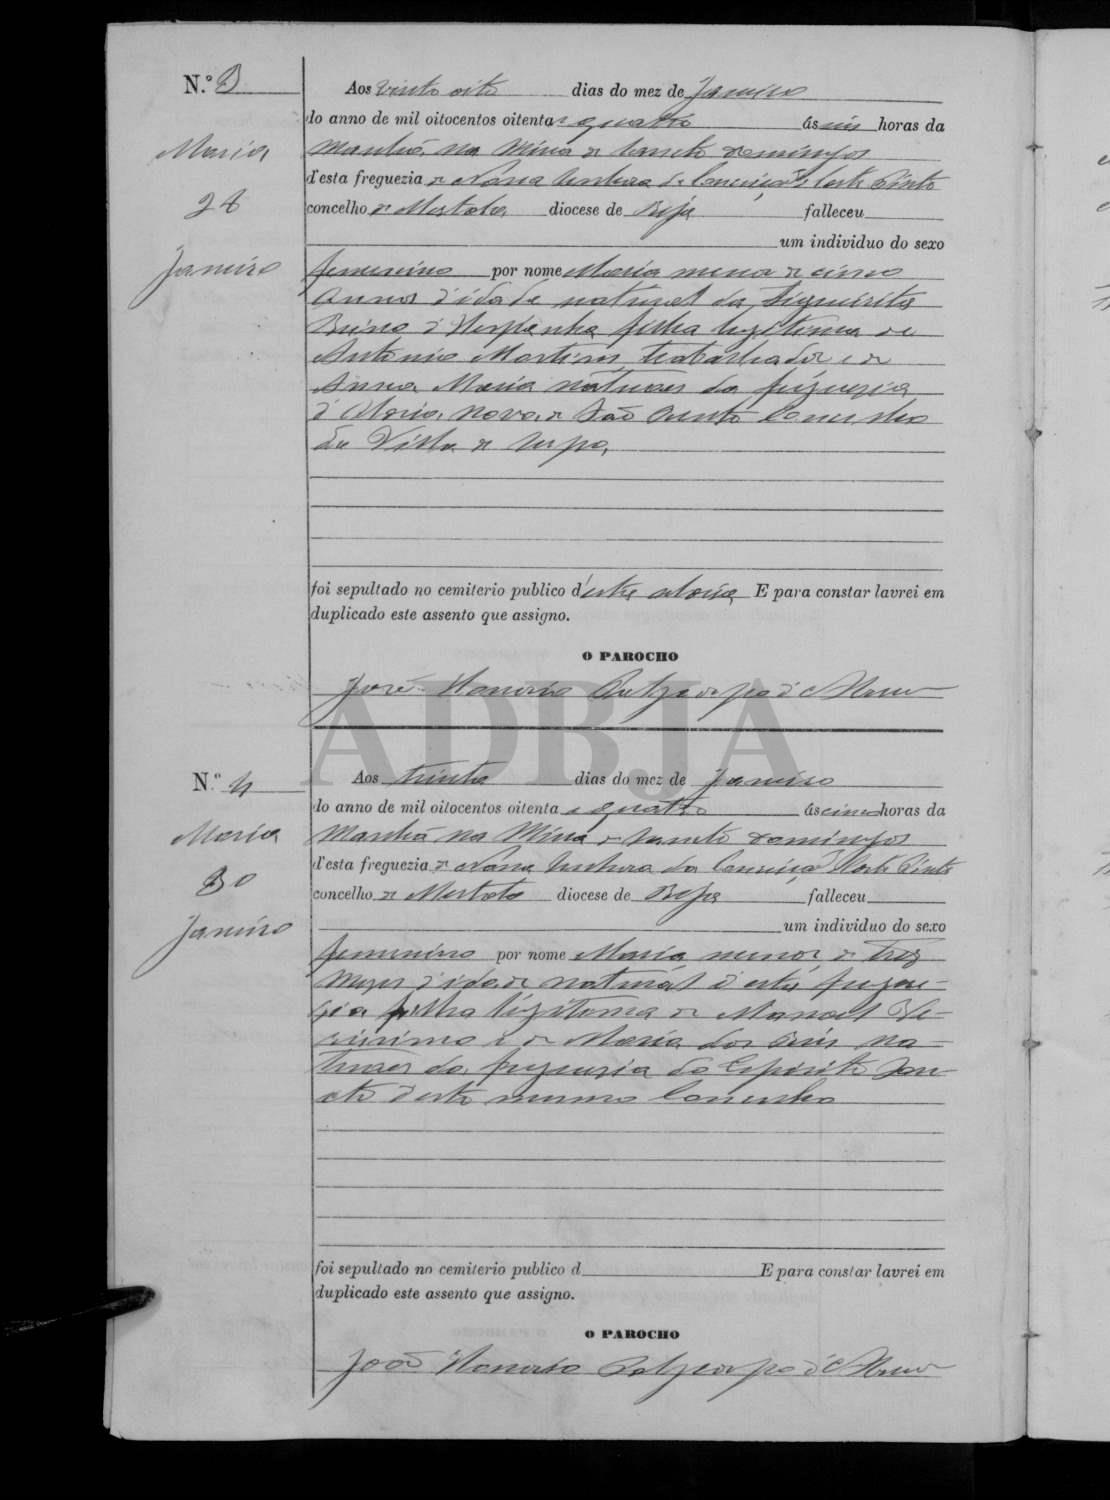 N.º 3
Maria
28
Janeiro
Aos vinte oito dias do mez de Janeiro
do anno de mil oitocentos oitenta e quatro ás seis horas da
manhã na Mina de Sancto Domingos
d'esta freguezia de Nossa Senhora da Conceição de Corte Pinto
concelho de Mertola diocese de Beja falleceu
um individuo do sexo
femenino por nome Maria menor de cinco
annos d'idade natural da
Reino d'Hespanha filha legitima de
Antonio Martins, trabalhador e de
Anna Maria naturaes da freguezia
d'Aldeia nova de São Bento Concelho
da Villa de Serpa,
foi sepultado no cemiterio publico d'esta aldeia E para constar lavrei em
duplicado este assento que assigno.
O PAROCHO
José Honorio
ADBJA
N.º 4
Maria
30
Janeiro
Aos trinta dias do mez de Janeiro
do anno de mil oitocentos oitenta e quatro ás cinco horas da
Manhã na Mina de Sancto Domingos
d'esta freguezia de Nossa Senhora da Conceição Corte Pinto
concelho de Mertola diocese de Beja falleceu
um individuo do sexo
femenino por nome Maria menor de trez
mezes d'idade natural d'esta fregue-
zia filha legitima de Manoel Ve-
rissimo e de Maria dos Reis na-
turaes da freguezia do Espirito San-
cto d'este mesmo Concelho
foi sepultado no cemiterio publico d E para constar lavrei em
duplicado este assento que assigno.
O PAROCHO
João Honorio